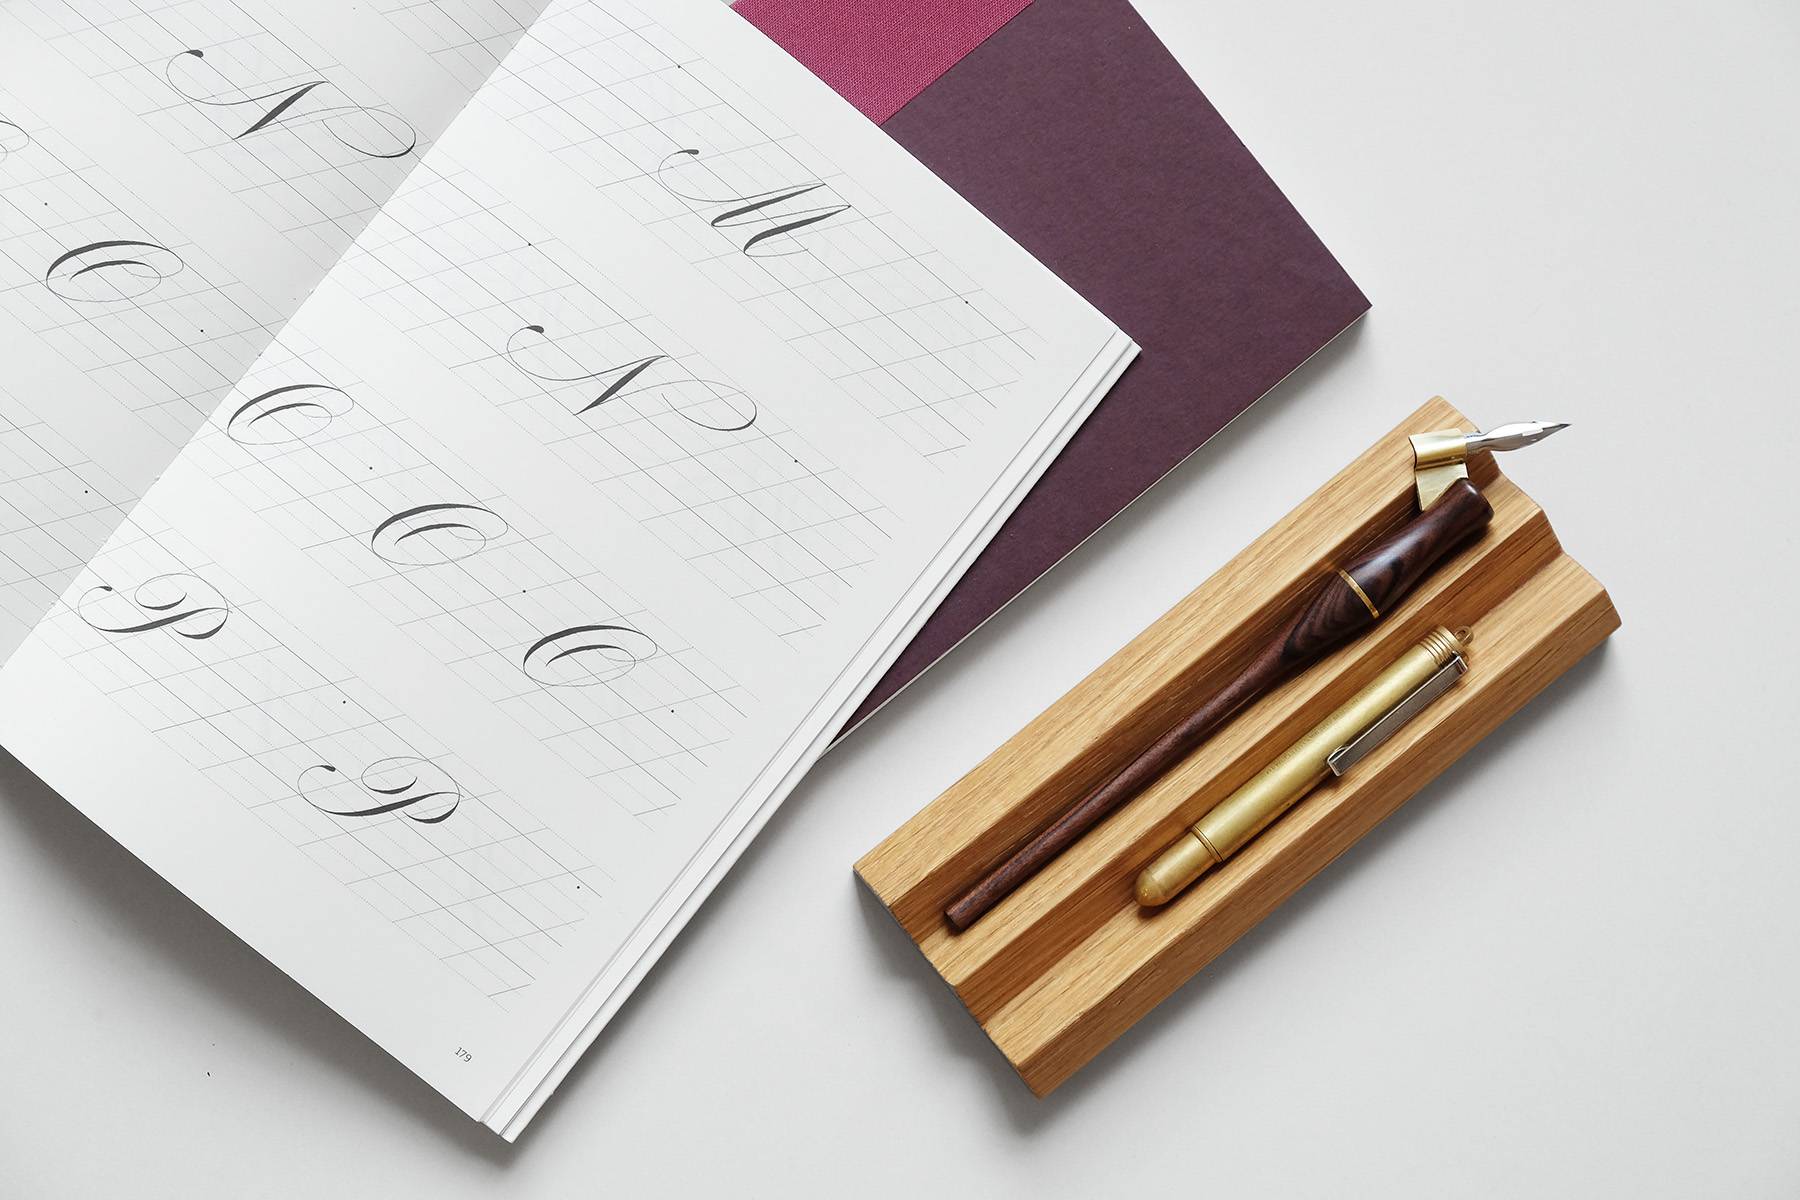 N
O
M
N
O O O
P P
179